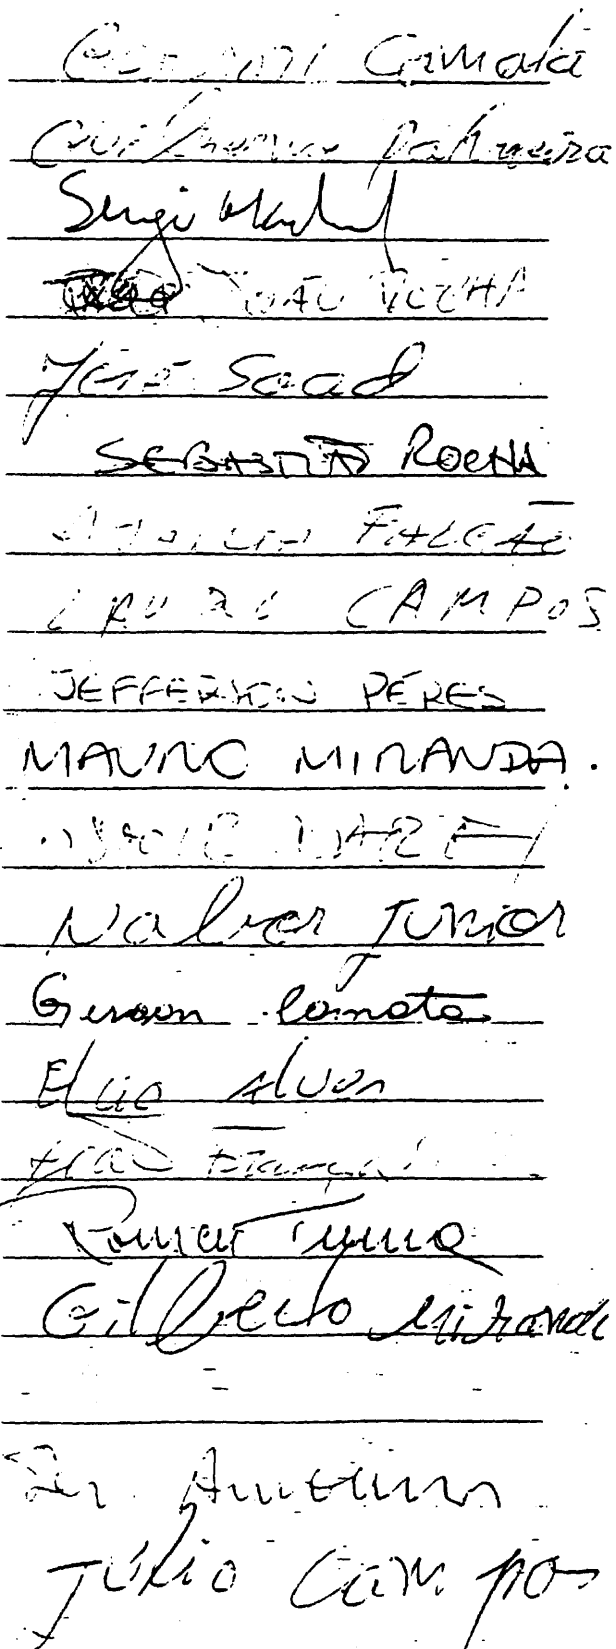 Camata
Guilherme Palmeira
Sergio Machado
JOÃO ROCHA
José Saad
SEBASTIÃO ROCHA
FALCÃO
LAURO CAMPOS
JEFFERSON PÉRES
MAURO MIRANDA.
Nabor Junior
Gerson Camata
Elcio Alvares
Romeu Tuma
Gilberto Miranda
Júlio Campos